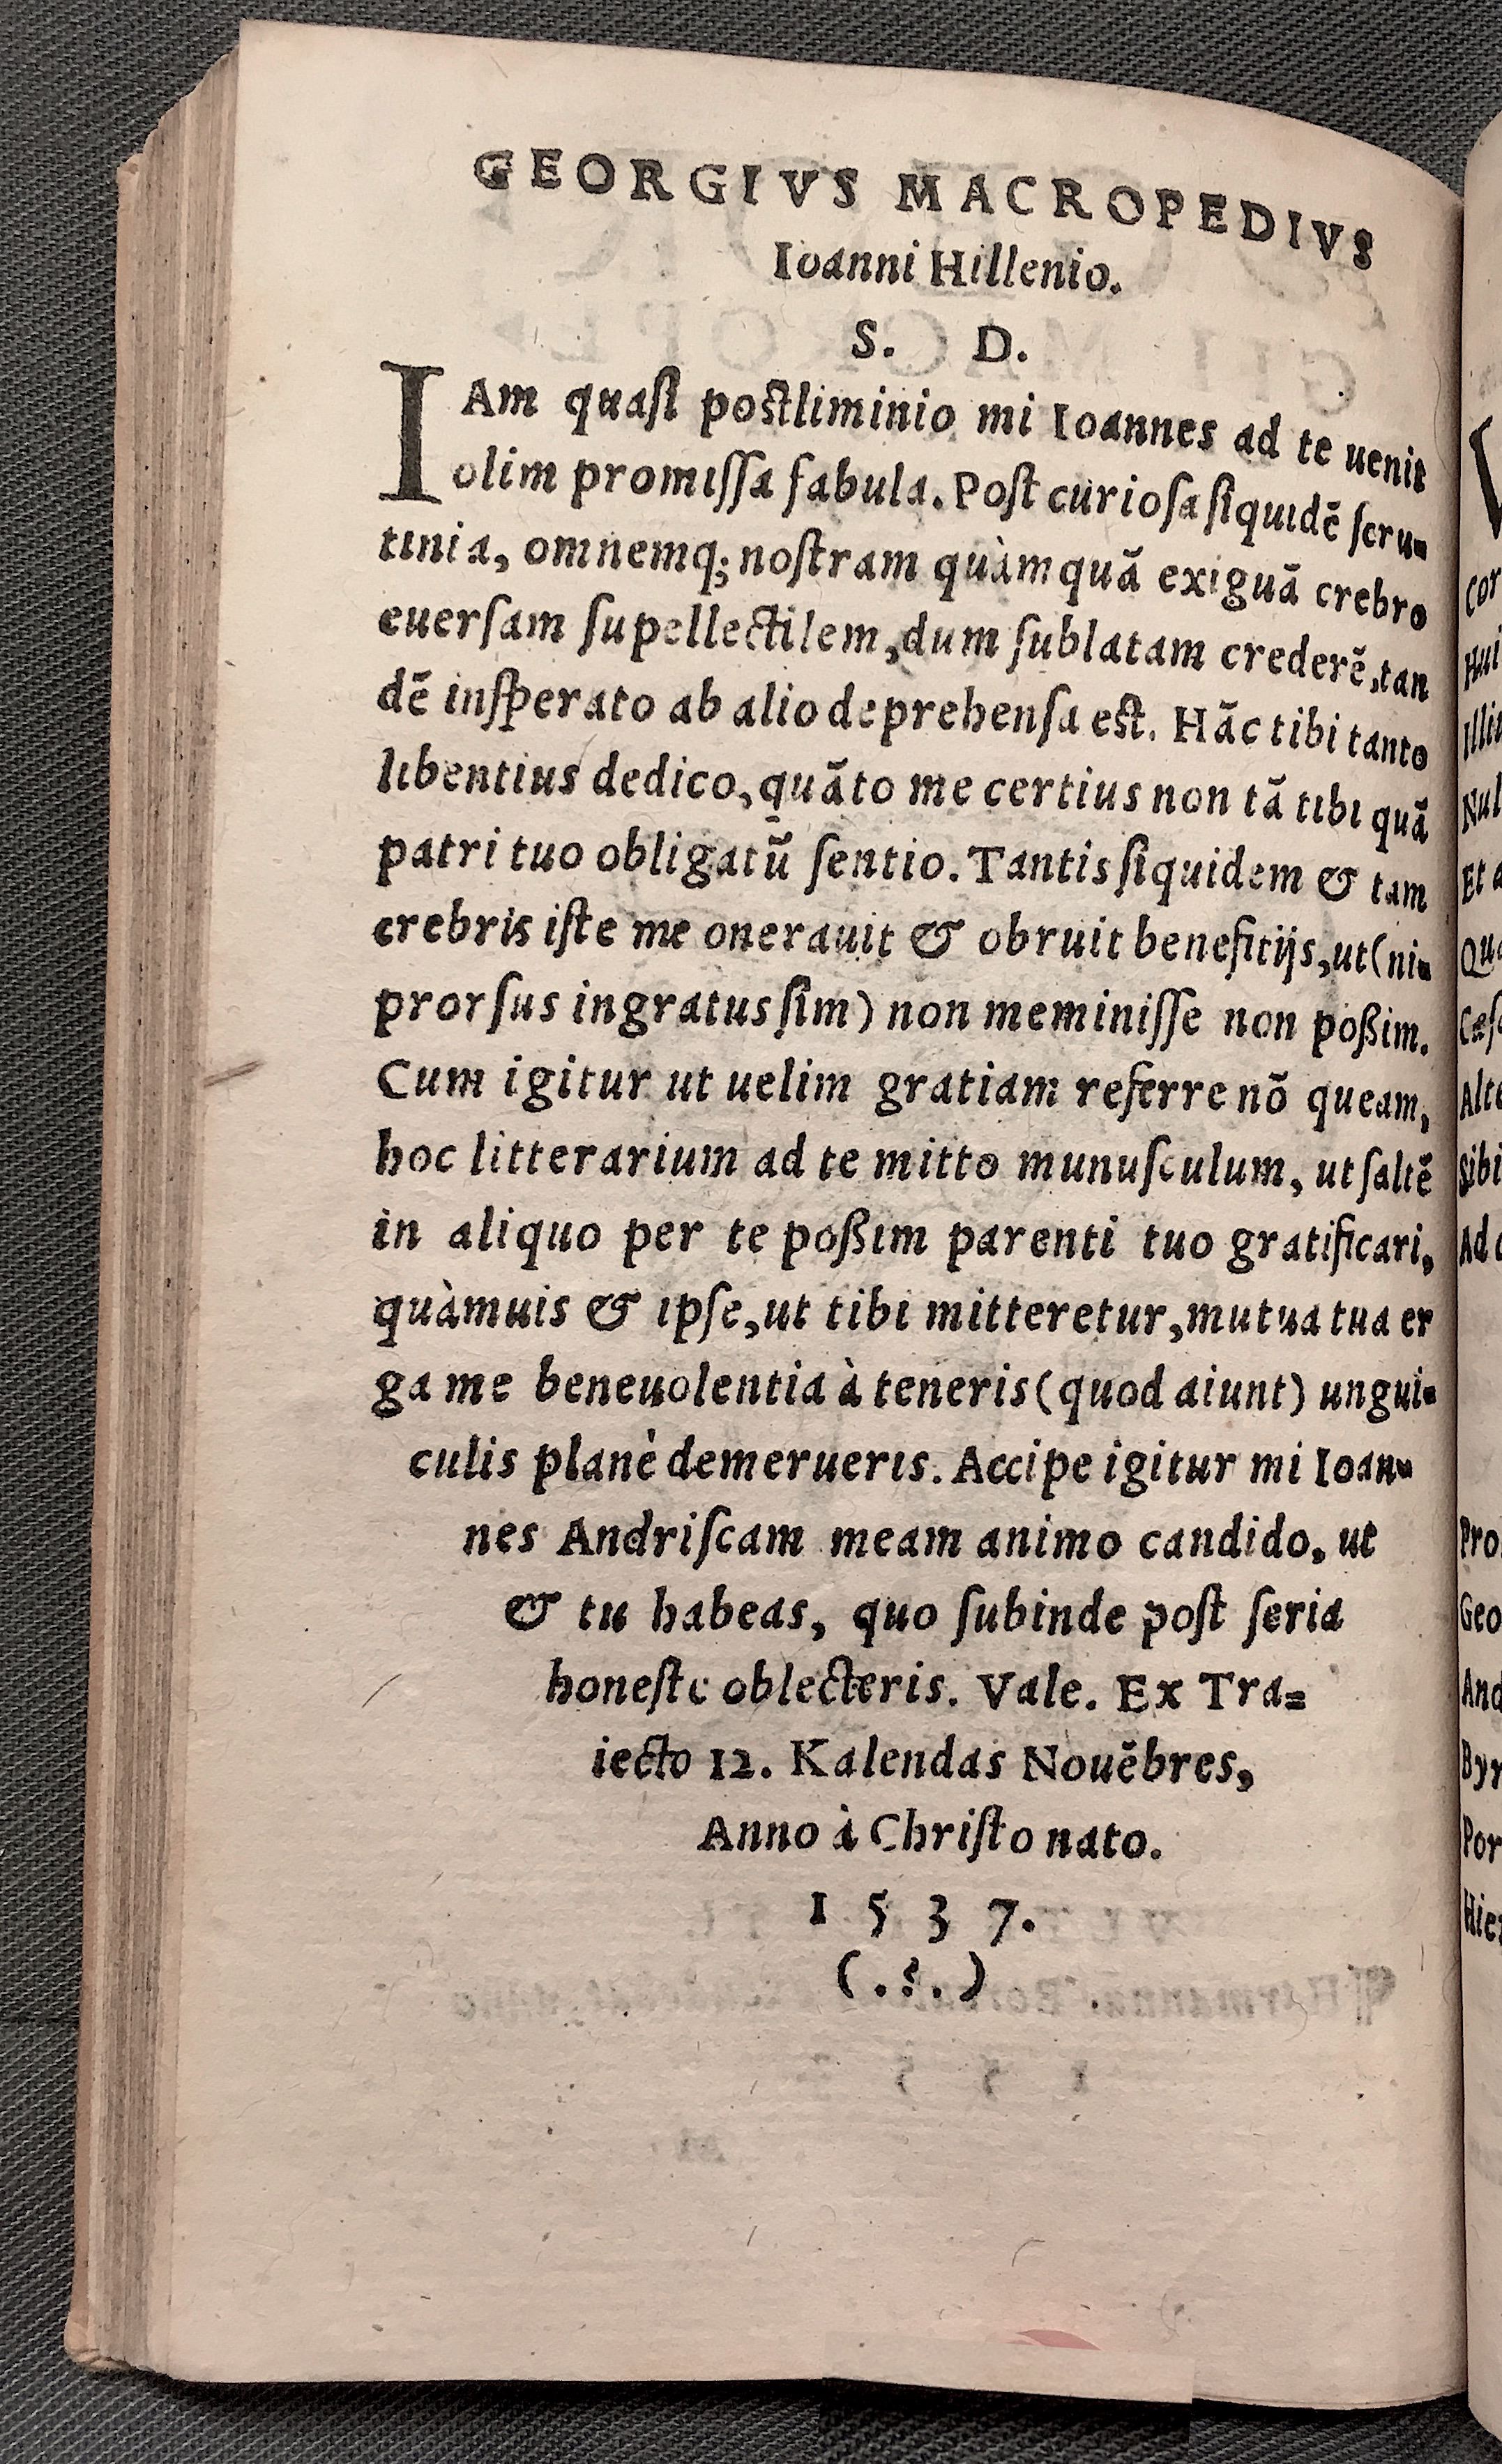 GEORGIVS MACROPEDIVS
Ioanni Hillenio.
S. D.
IAm quaſi poſtliminio mi Ioannes ad te uenit
olim promiſſa fabula. Poſt curioſa ſiquidẽ ſcru-
tinia, omnemq; noſtram quàmquã exiguã crebro
euerſam ſupellectilem, dum ſublatam crederẽ, tan
dẽ inſperato ab alio deprehenſa eſt. Hãc tibi tanto
libentius dedico, quãto me certius non tã tibi quã
patri tuo obligatũ ſentio. Tantis ſiquidem & tam
crebris iſte me onerauit & obruit beneficijs, ut (ni-
prorſus ingratus ſim) non meminiſſe non poßim.
Cum igitur ut uelim gratiam referre nõ queam,
hoc litterarium ad te mitto munuſculum, ut ſaltẽ
in aliquo per te poßim parenti tuo gratificari,
quàmuis & ipſe, ut tibi mitteretur, mutua tua er
ga me beneuolentia à teneris (quod aiunt) ungui-
culis planè demerueris. Accipe igitur mi Ioan-
nes Andriſcam meam animo candido, ut
& tu habeas, quo ſubinde poſt ſeria
honeſte oblecteris. Vale. Ex Tra=
iecto 12. Kalendas Nouẽbres,
Anno à Chriſto nato.
1 5 3 7.
(.:.)
Cor
Hui
Illi
Nul
Et a
Alte
Sibi
Ad
Pro
Geo
And
Byr
Por